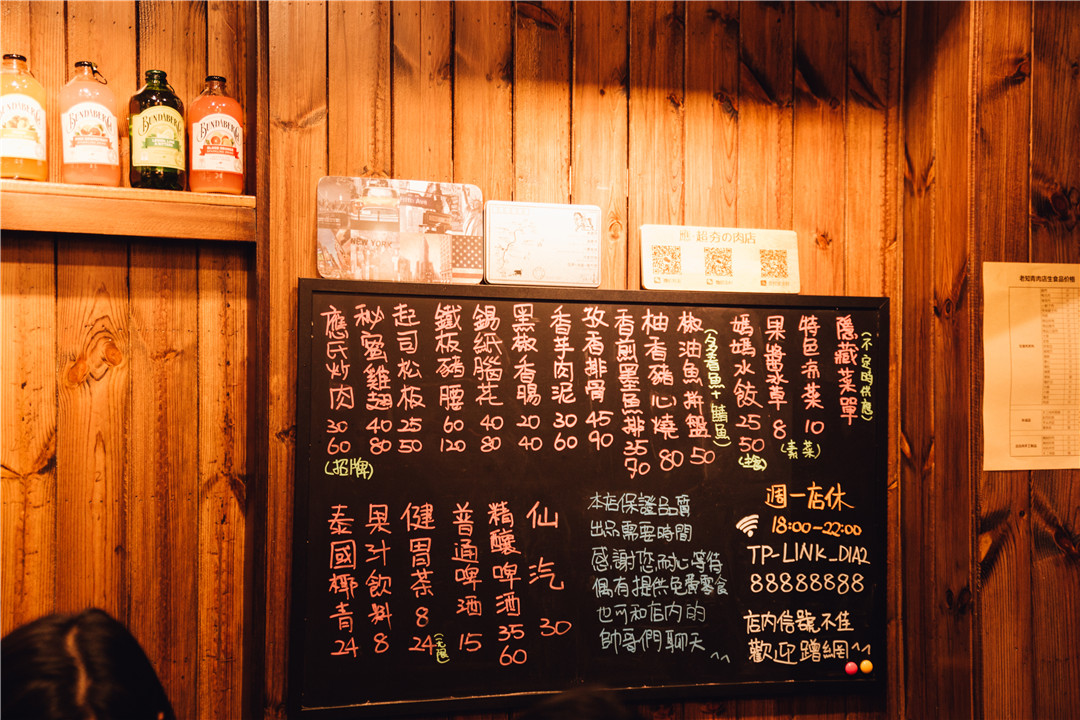 BUNDABERG
BUNDABERG
BUNDABERG
BUNDABERG
NEW YORK
應·超夯の肉店
老知青肉店生食品价格
隱藏菜單
(不定時供應)
特色涼菜 10
(素菜)
果醬冰草 8
媽媽水餃 25 50
椒油魚拼盤 50
柚香豬心燒 80
香煎墨魚排 35 70
孜香排骨 45 90
香芋肉泥 30 60
黑椒香腸 20 40
錫紙腦花 40 80
鐵板豬腰 60 120
起司松板 25 50
秘蜜雞翅 40 80
應氏炒肉 30 60
(招牌)
仙汽 30
精釀啤酒 35 60
普通啤酒 15
健胃茶 8 24
(无限)
果汁飲料 8
泰國椰青 24
本店保證品質
出品需要時間
感謝您耐心等待
偶有提供免費零食
也可和店内的
帥哥們聊天^^
週一店休
18:00-22:00
TP-LINK_D1A2
88888888
店内信號不佳
歡迎蹭網^^